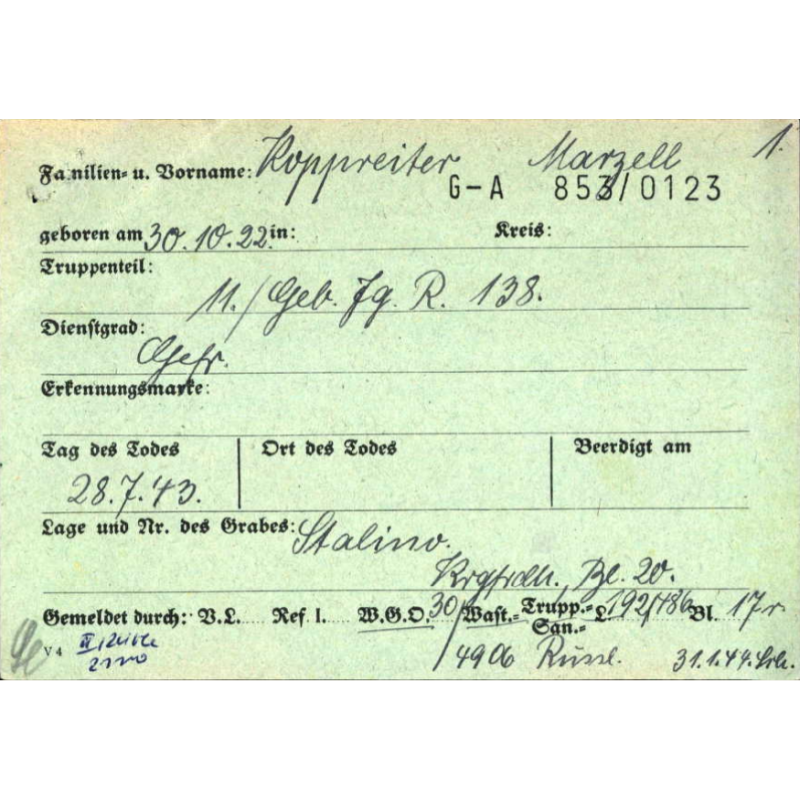 Familien- u. Vorname: Koppreiter Marzell 1.
G-A 853/0123
geboren am 30.10.22 in: Kreis:
Truppenteil:
11./Geb. Jg. R. 138.
Dienstgrad:
Gefr.
Erkennungsmarke:
Tag des Todes Ort des Todes Beerdigt am
28.7.43.
Lage und Nr. des Grabes: Stalino.
Krgfrdh., Bl. 20.
Gemeldet durch: V.L. Ref I. W.G.O. 30/ Wast.- Trupp.- L 192/486 Bl. 17r
San.-
V 4
/4906 Russl. 31.1.44.